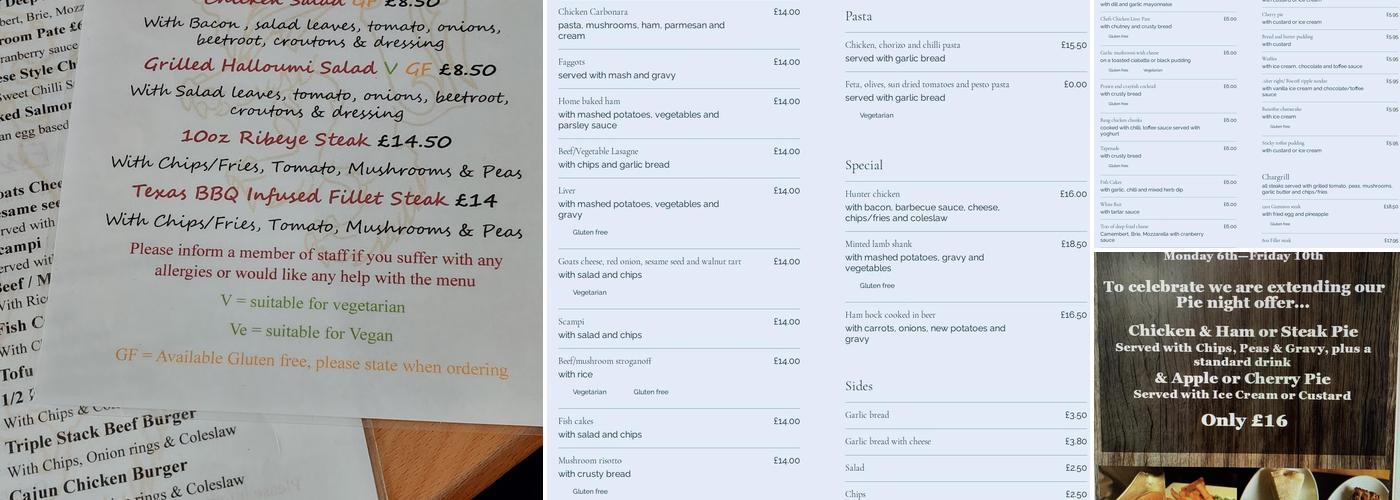 Chicken Salad GF £8.50
With Bacon, salad leaves, tomato, onions,
beetroot, croutons & dressing
Grilled Halloumi Salad V GF £8.50
With Salad leaves, tomato, onions, beetroot,
croutons & dressing
10oz Ribeye Steak £14.50
With Chips/Fries, Tomato, Mushrooms & Peas
Texas BBQ Infused Fillet Steak £14
With Chips/Fries, Tomato, Mushrooms & Peas
Please inform a member of staff if you suffer with any
allergies or would like any help with the menu
V = suitable for vegetarian
Ve = suitable for Vegan
GF = Available Gluten free, please state when ordering
Tofu
With Chips &
Triple Stack Beef Burger
With Chips, Onion rings & Coleslaw
Cajun Chicken Burger
rings & Coleslaw
Chicken Carbonara £14.00
pasta, mushrooms, ham, parmesan and
cream
Faggots £14.00
served with mash and gravy
Home baked ham £14.00
with mashed potatoes, vegetables and
parsley sauce
Beef/Vegetable Lasagne £14.00
with chips and garlic bread
Liver £14.00
with mashed potatoes, vegetables and
gravy
Gluten free
Goats cheese, red onion, sesame seed and walnut tart £14.00
with salad and chips
Vegetarian
Scampi £14.00
with salad and chips
Beef/mushroom stroganoff £14.00
with rice
Vegetarian Gluten free
Fish cakes £14.00
with salad and chips
Mushroom risotto £14.00
with crusty bread
Gluten free
Pasta
Chicken, chorizo and chilli pasta £15.50
served with garlic bread
Feta, olives, sun dried tomatoes and pesto pasta £0.00
served with garlic bread
Vegetarian
Special
Hunter chicken £16.00
with bacon, barbecue sauce, cheese,
chips/fries and coleslaw
Minted lamb shank £18.50
with mashed potatoes, gravy and
vegetables
Gluten free
Ham hock cooked in beer £16.50
with carrots, onions, new potatoes and
gravy
Sides
Garlic bread £3.50
Garlic bread with cheese £3.80
Salad £2.50
Chips £2.50
with dill and garlic mayonnaise
Chefs Chicken Liver Pate £6.00
with chutney and crusty bread
Gluten free
Garlic mushroom with cheese £6.00
on a toasted ciabatta or black pudding
Gluten free Vegetarian
Prawn and crayfish cocktail £6.00
with crusty bread
Gluten free
Bang chicken chunks £6.00
cooked with chilli, toffee sauce served with
yoghurt
Tapenade £6.00
with crusty bread
Gluten free
Fish Cakes £6.00
with garlic, chilli and mixed herb dip
White Bait £6.00
with tartar sauce
Trio of deep fried cheese £6.00
Camembert, Brie, Mozzarella with cranberry
sauce
with custard or ice cream
Cherry pie £5.95
with custard or ice cream
Bread and butter pudding £5.95
with custard
Waffles £5.95
with ice cream, chocolate and toffee sauce
£5.95
with vanilla ice cream and chocolate/toffee
sauce
Banoffee cheesecake £5.95
with ice cream
Gluten free
Sticky toffee pudding £5.95
with custard or ice cream
Chargrill
all steaks served with grilled tomato, peas, mushrooms,
garlic butter and chips/fries
Gammon steak £18.50
with fried egg and pineapple
Gluten free
8oz Fillet steak £17.95
Monday 6th—Friday 10th
To celebrate we are extending our
Pie night offer...
Chicken & Ham or Steak Pie
Served with Chips, Peas & Gravy, plus a
standard drink
& Apple or Cherry Pie
Served with Ice Cream or Custard
Only £16